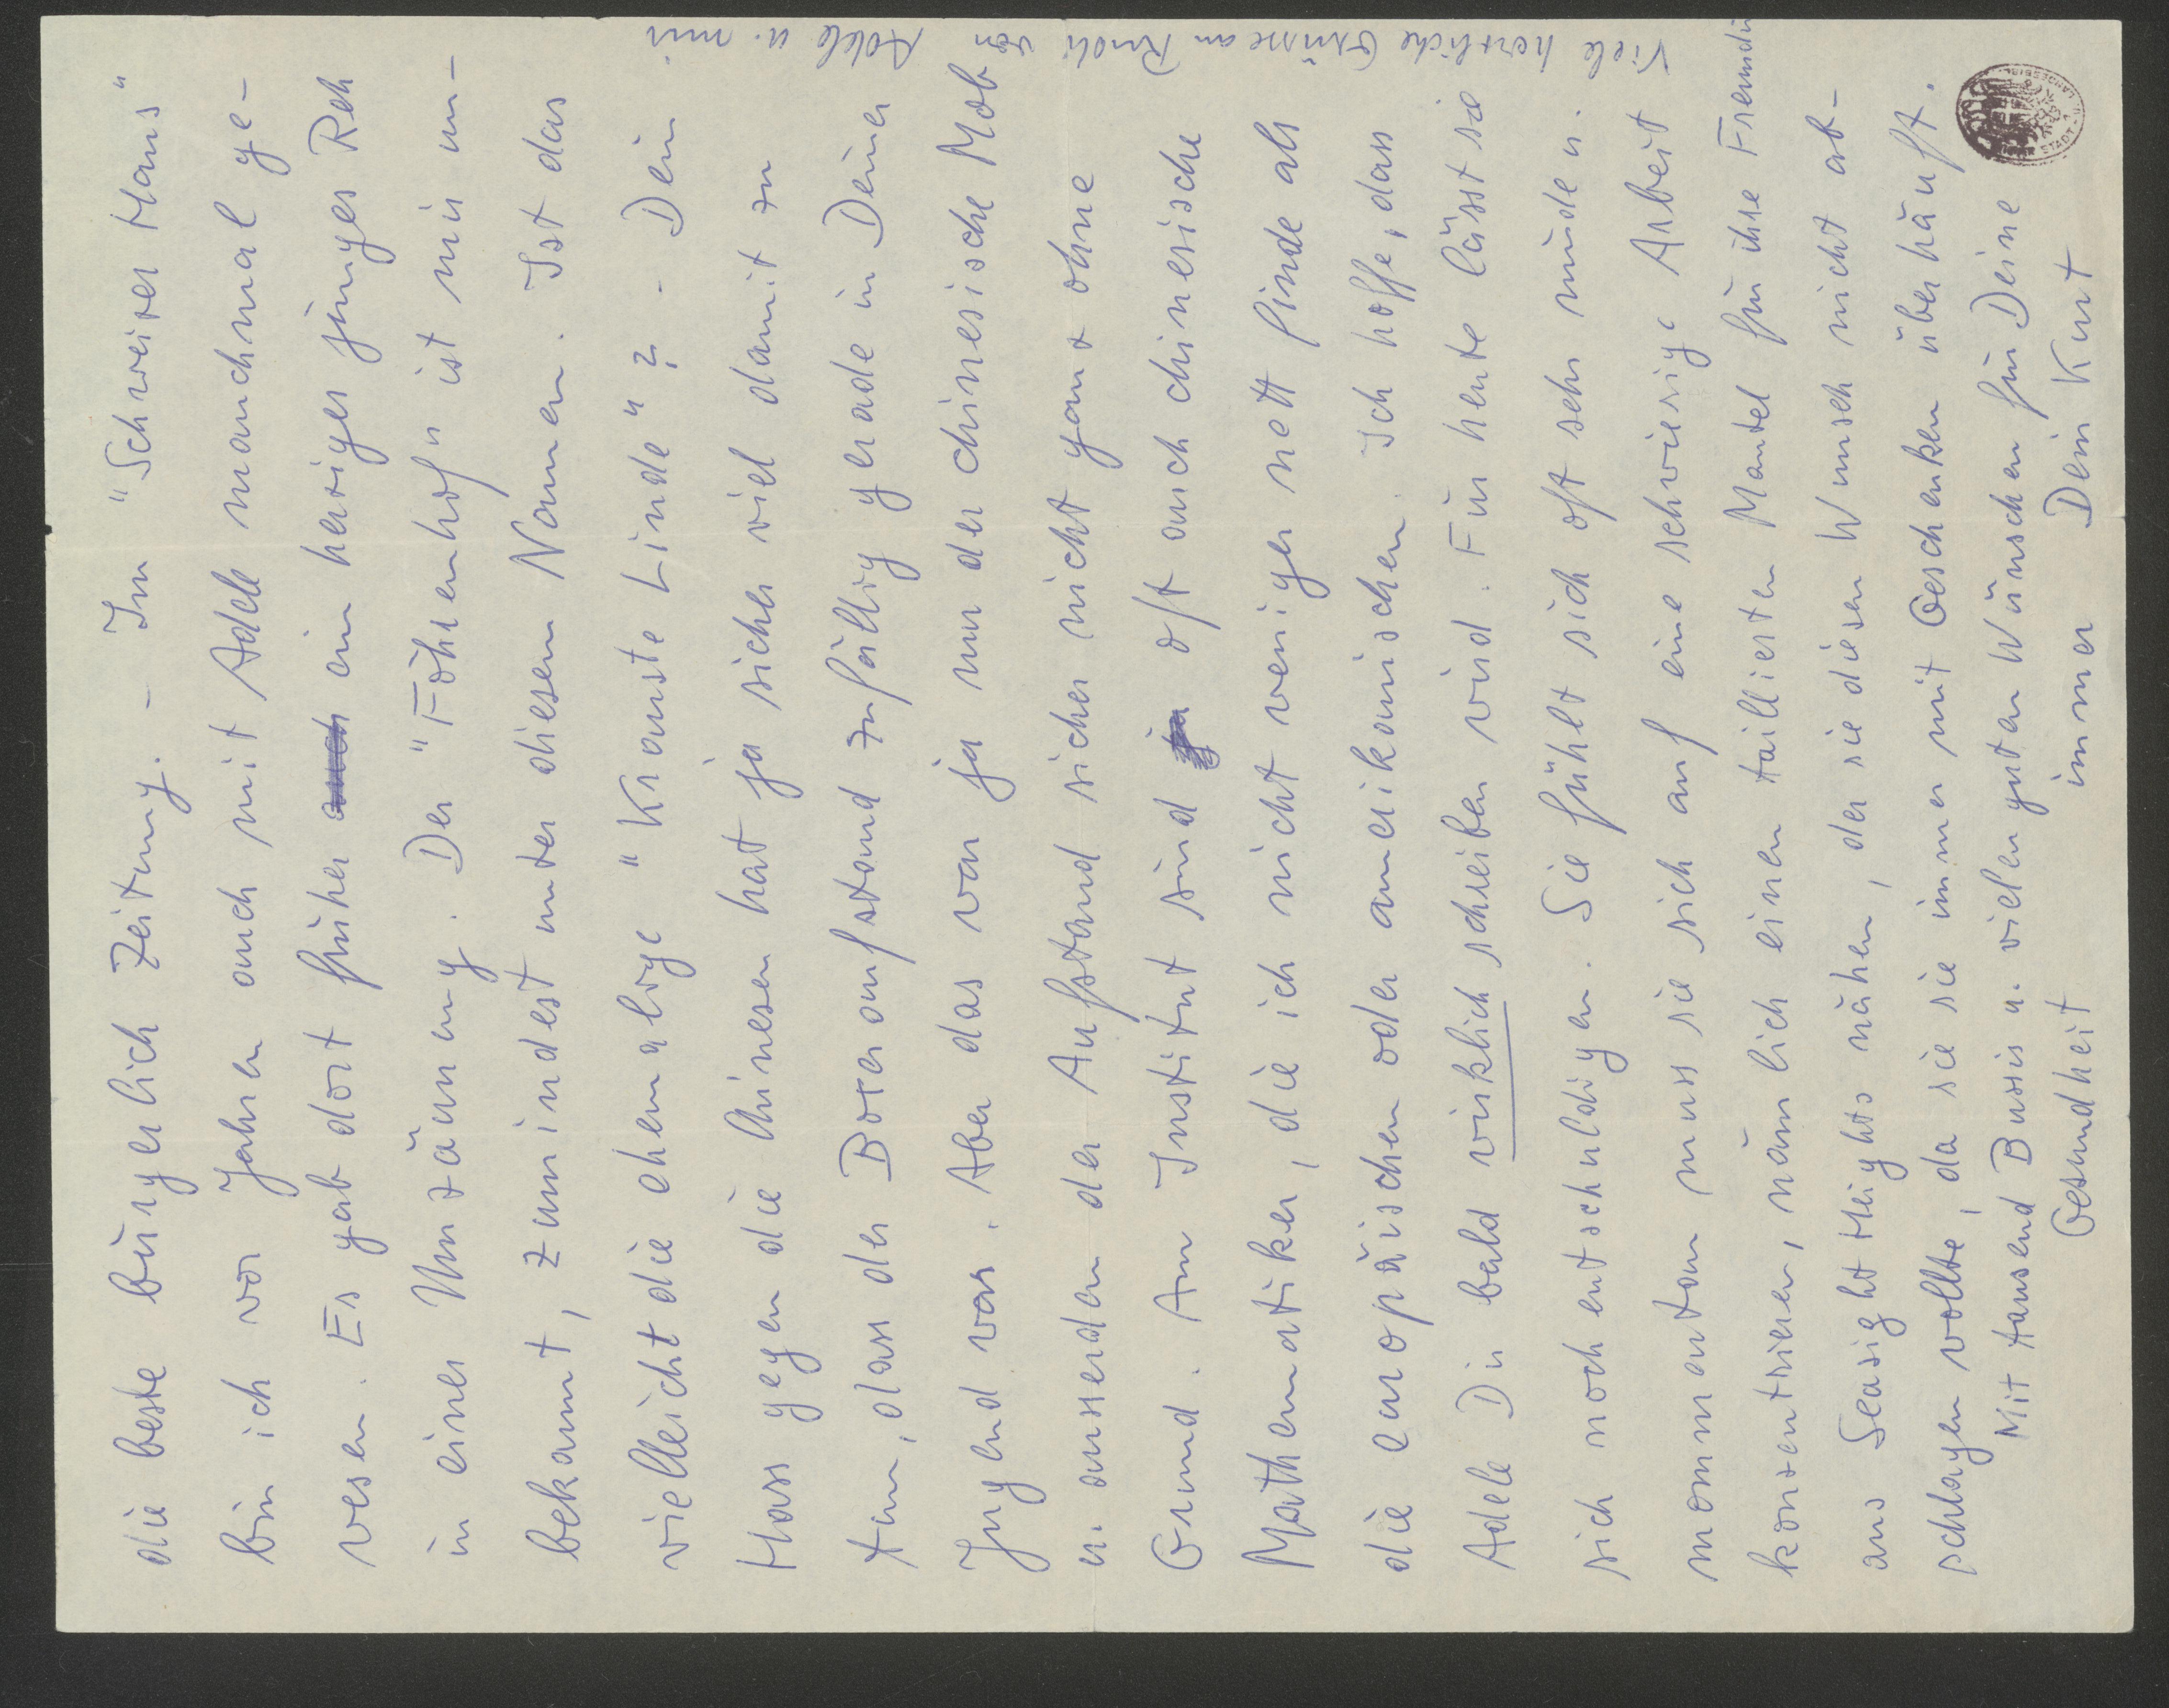 die beste bürgerlich Zeitung. – Im "Schweizer Haus"
bin ich vor Jahren auch mit Adele manchmal ge-
wesen. Es gab dort früher auch ein herziges junges Reh
in einer Umzäunung. Der "Föhrenhof" ist mir un-
bekannt, zumindest unter diesem Namen. Ist das
vielleicht die ehemalige "Kranste Linde"? – Dein
Hass gegen die Chinesen hat ja sicher viel damit zu
tun, dass der Boxeraufstand zufällig gerade in Deiner
Jugend war. Aber das war ja nur der chinesische Mob
u. ausserdem der Aufstand sicher nicht ganz ohne
Grund. Am Institut sind ja oft auch chinesische
Mathematiker, die ich nicht weniger nett finde als
die europäischen oder amerikanischen. Ich hoffe, dass
Adele Dir bald wirklich schreiben wird. Für heute lässt sie
sich noch entschuldigen. Sie fühlt sich oft sehr müde u.
momentan muss sie sich auf eine schwierige Arbeit
konzentrieren, nämlich einen taillierten Mantel für ihre Freundin
aus Seasight Heights nähen, der sie diesen Wunsch nicht ab-
schlagen wollte, da sie sie immer mit Geschenken überhäuft.
Mit tausend Bussis u. vielen guten Wünschen für Deine
Gesundheit immer Dein Kurt
Viele herzliche Grüsse an Rudi. Adele u. mir.